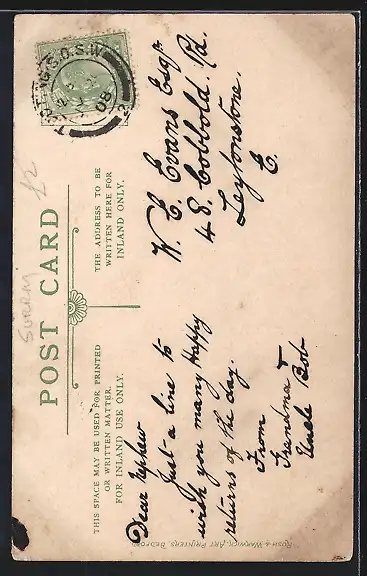 POST CARD
THIS SPACE MAY BE USED FOR PRINTED
OR WRITTEN MATTER.
FOR INLAND USE ONLY.
THE ADDRESS TO BE
WRITTEN HERE FOR
INLAND ONLY.
SURREY
£2
TOOTING S.O.S.W
08
Dear Nephew
Just a line to
wish you many Happy
returns of the day.
From
Grandma &
Uncle Bob
W. E. Evans Esqr
48 Cobbold Rd.
Leytonstone.
E.
RUSH & WARWICK, ART PRINTERS, BEDFORD